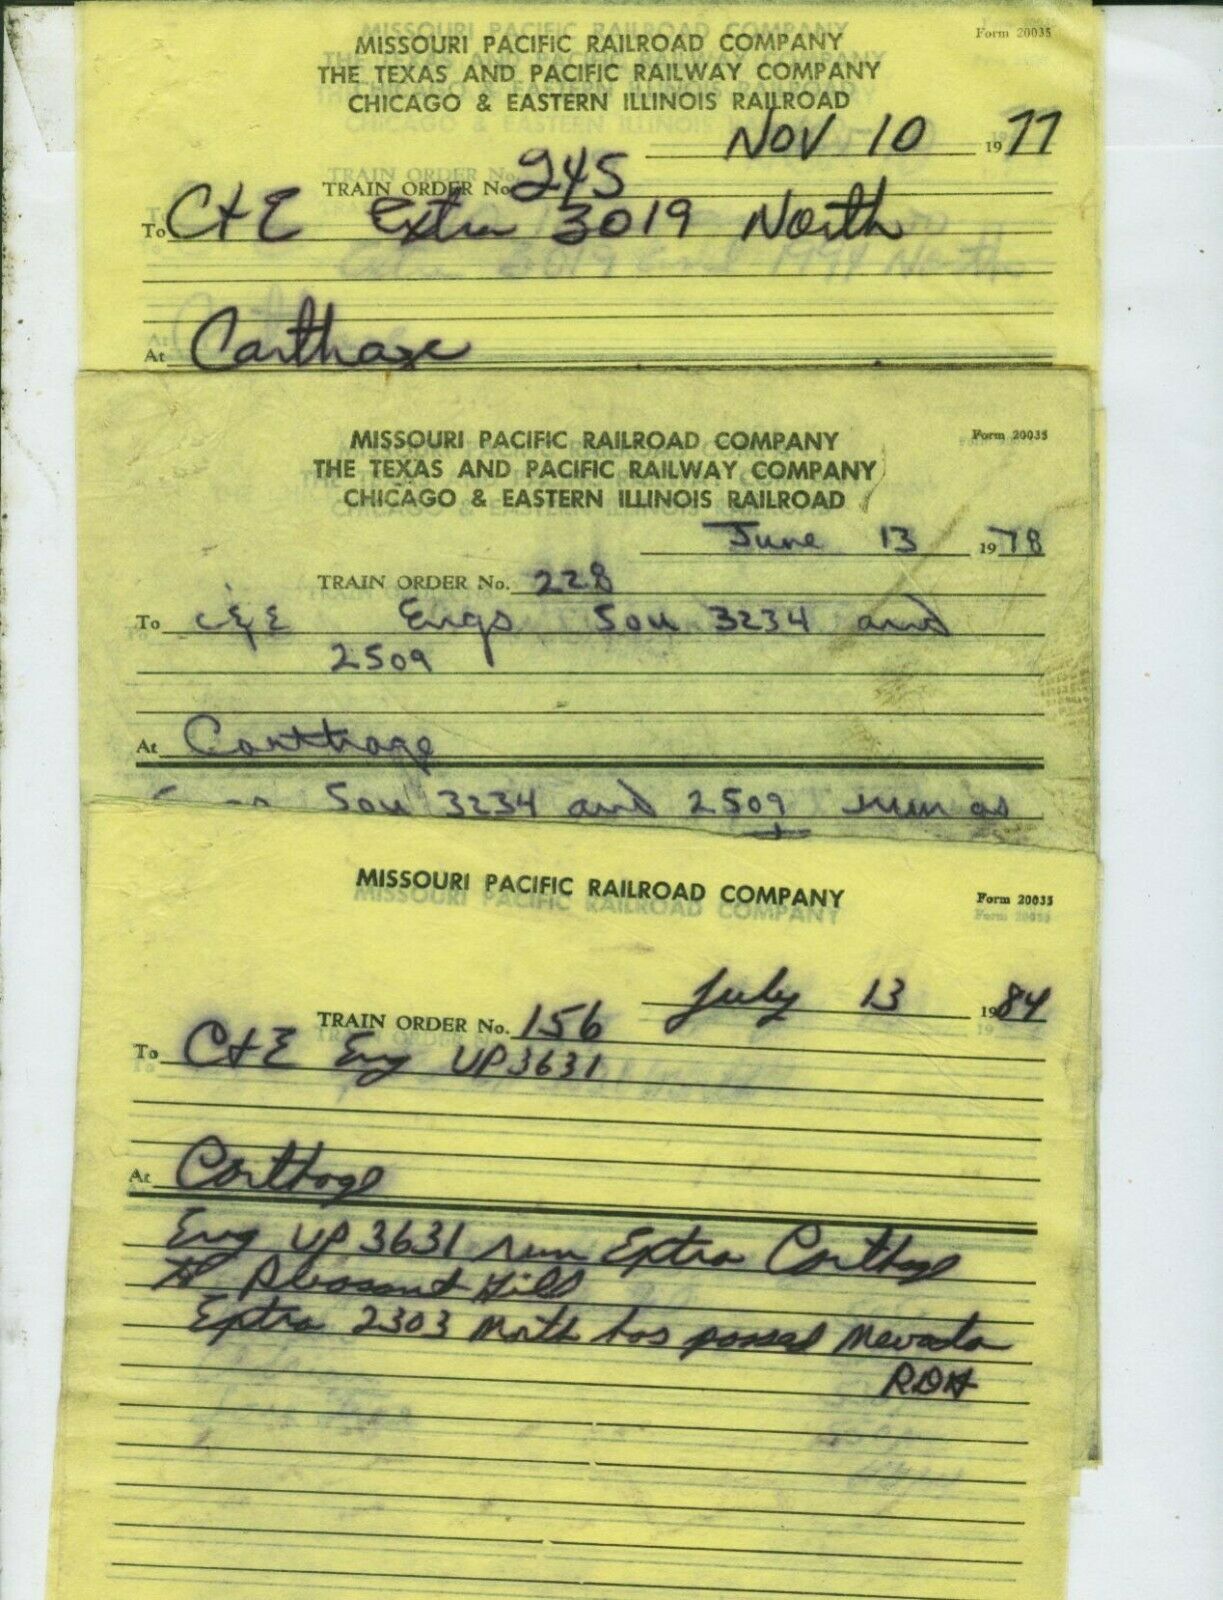 Form 20035
MISSOURI PACIFIC RAILROAD COMPANY
THE TEXAS AND PACIFIC RAILWAY COMPANY
CHICAGO & EASTERN ILLINOIS RAILROAD
Nov 10 1977
TRAIN ORDER No. 245
To C+E Extra 3019 North
At Carthage
Form 20035
MISSOURI PACIFIC RAILROAD COMPANY
THE TEXAS AND PACIFIC RAILWAY COMPANY
CHICAGO & EASTERN ILLINOIS RAILROAD
June 13 1978
TRAIN ORDER No. 228
To C&E Engs Sou 3234 and
2509
At Carthage
Sou 3234 and 2509 run as
MISSOURI PACIFIC RAILROAD COMPANY
Form 20035
July 13 1984
TRAIN ORDER No. 156
To C+E Eng UP 3631
At Carthage
Eng UP 3631 run Extra Carthage
to Pleasant Hill
Extra 2303 North has passed Nevada
RDH